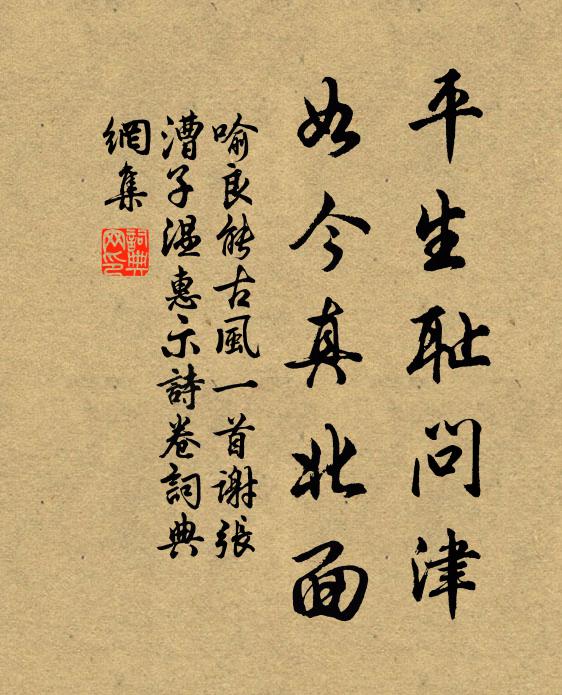 平生耻問津
如今真北面
喻良能古風一首謝張
漕子温惠示詩卷詞典
網集
詞典網印